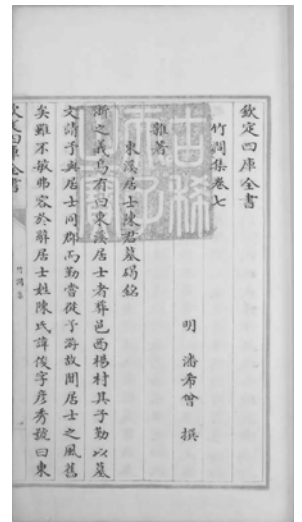 欽定四庫全書
竹澗集卷七
明 潘希曾 撰
雜著
東溪居士陳君墓碣銘
浙之義烏有曰東溪居士者葬邑西楊村其子勤以墓
文請予與居士同郡而勤嘗從予游故聞居士之風舊
矣雖不敏弗容於辭居士姓陳氏諱俊字彦秀號曰東
欽定四庫全書
竹澗集